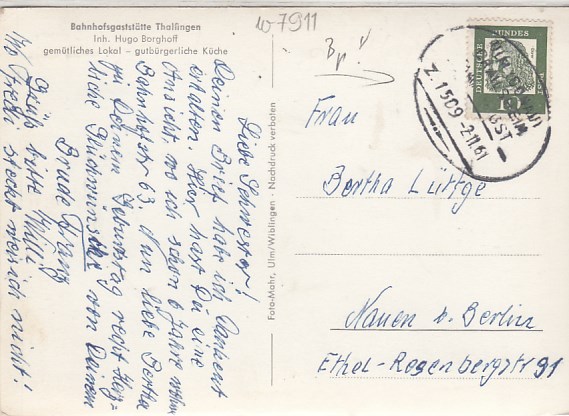 Bahnhofsgaststätte Thalfingen
Inh. Hugo Borghoff
gemütliches Lokal – gutbürgerliche Küche
w-7911
Liebe Schwester!
Deinen Brief habe ich Dankend
erhalten. Hier hast Du eine
Ansicht, wo ich schon 6 Jahre wohne
Bahnhofstr 63. Nun liebe Bertha
zu Deinem Geburtstag recht Herz-
liche Glückwünsche von Deinem
Bruder Franz
Grüß bitte Willi
u Fredi steckt mensich nicht!
Foto-Mahr, Ulm/Wiblingen · Nachdruck verboten
DEUTSCHE BUNDESPOST
10
Z. 1509
-2.11.61
Frau
Bertha Lüttge
Nauen b. Berlin
Ethel-Rosenbergstr 91